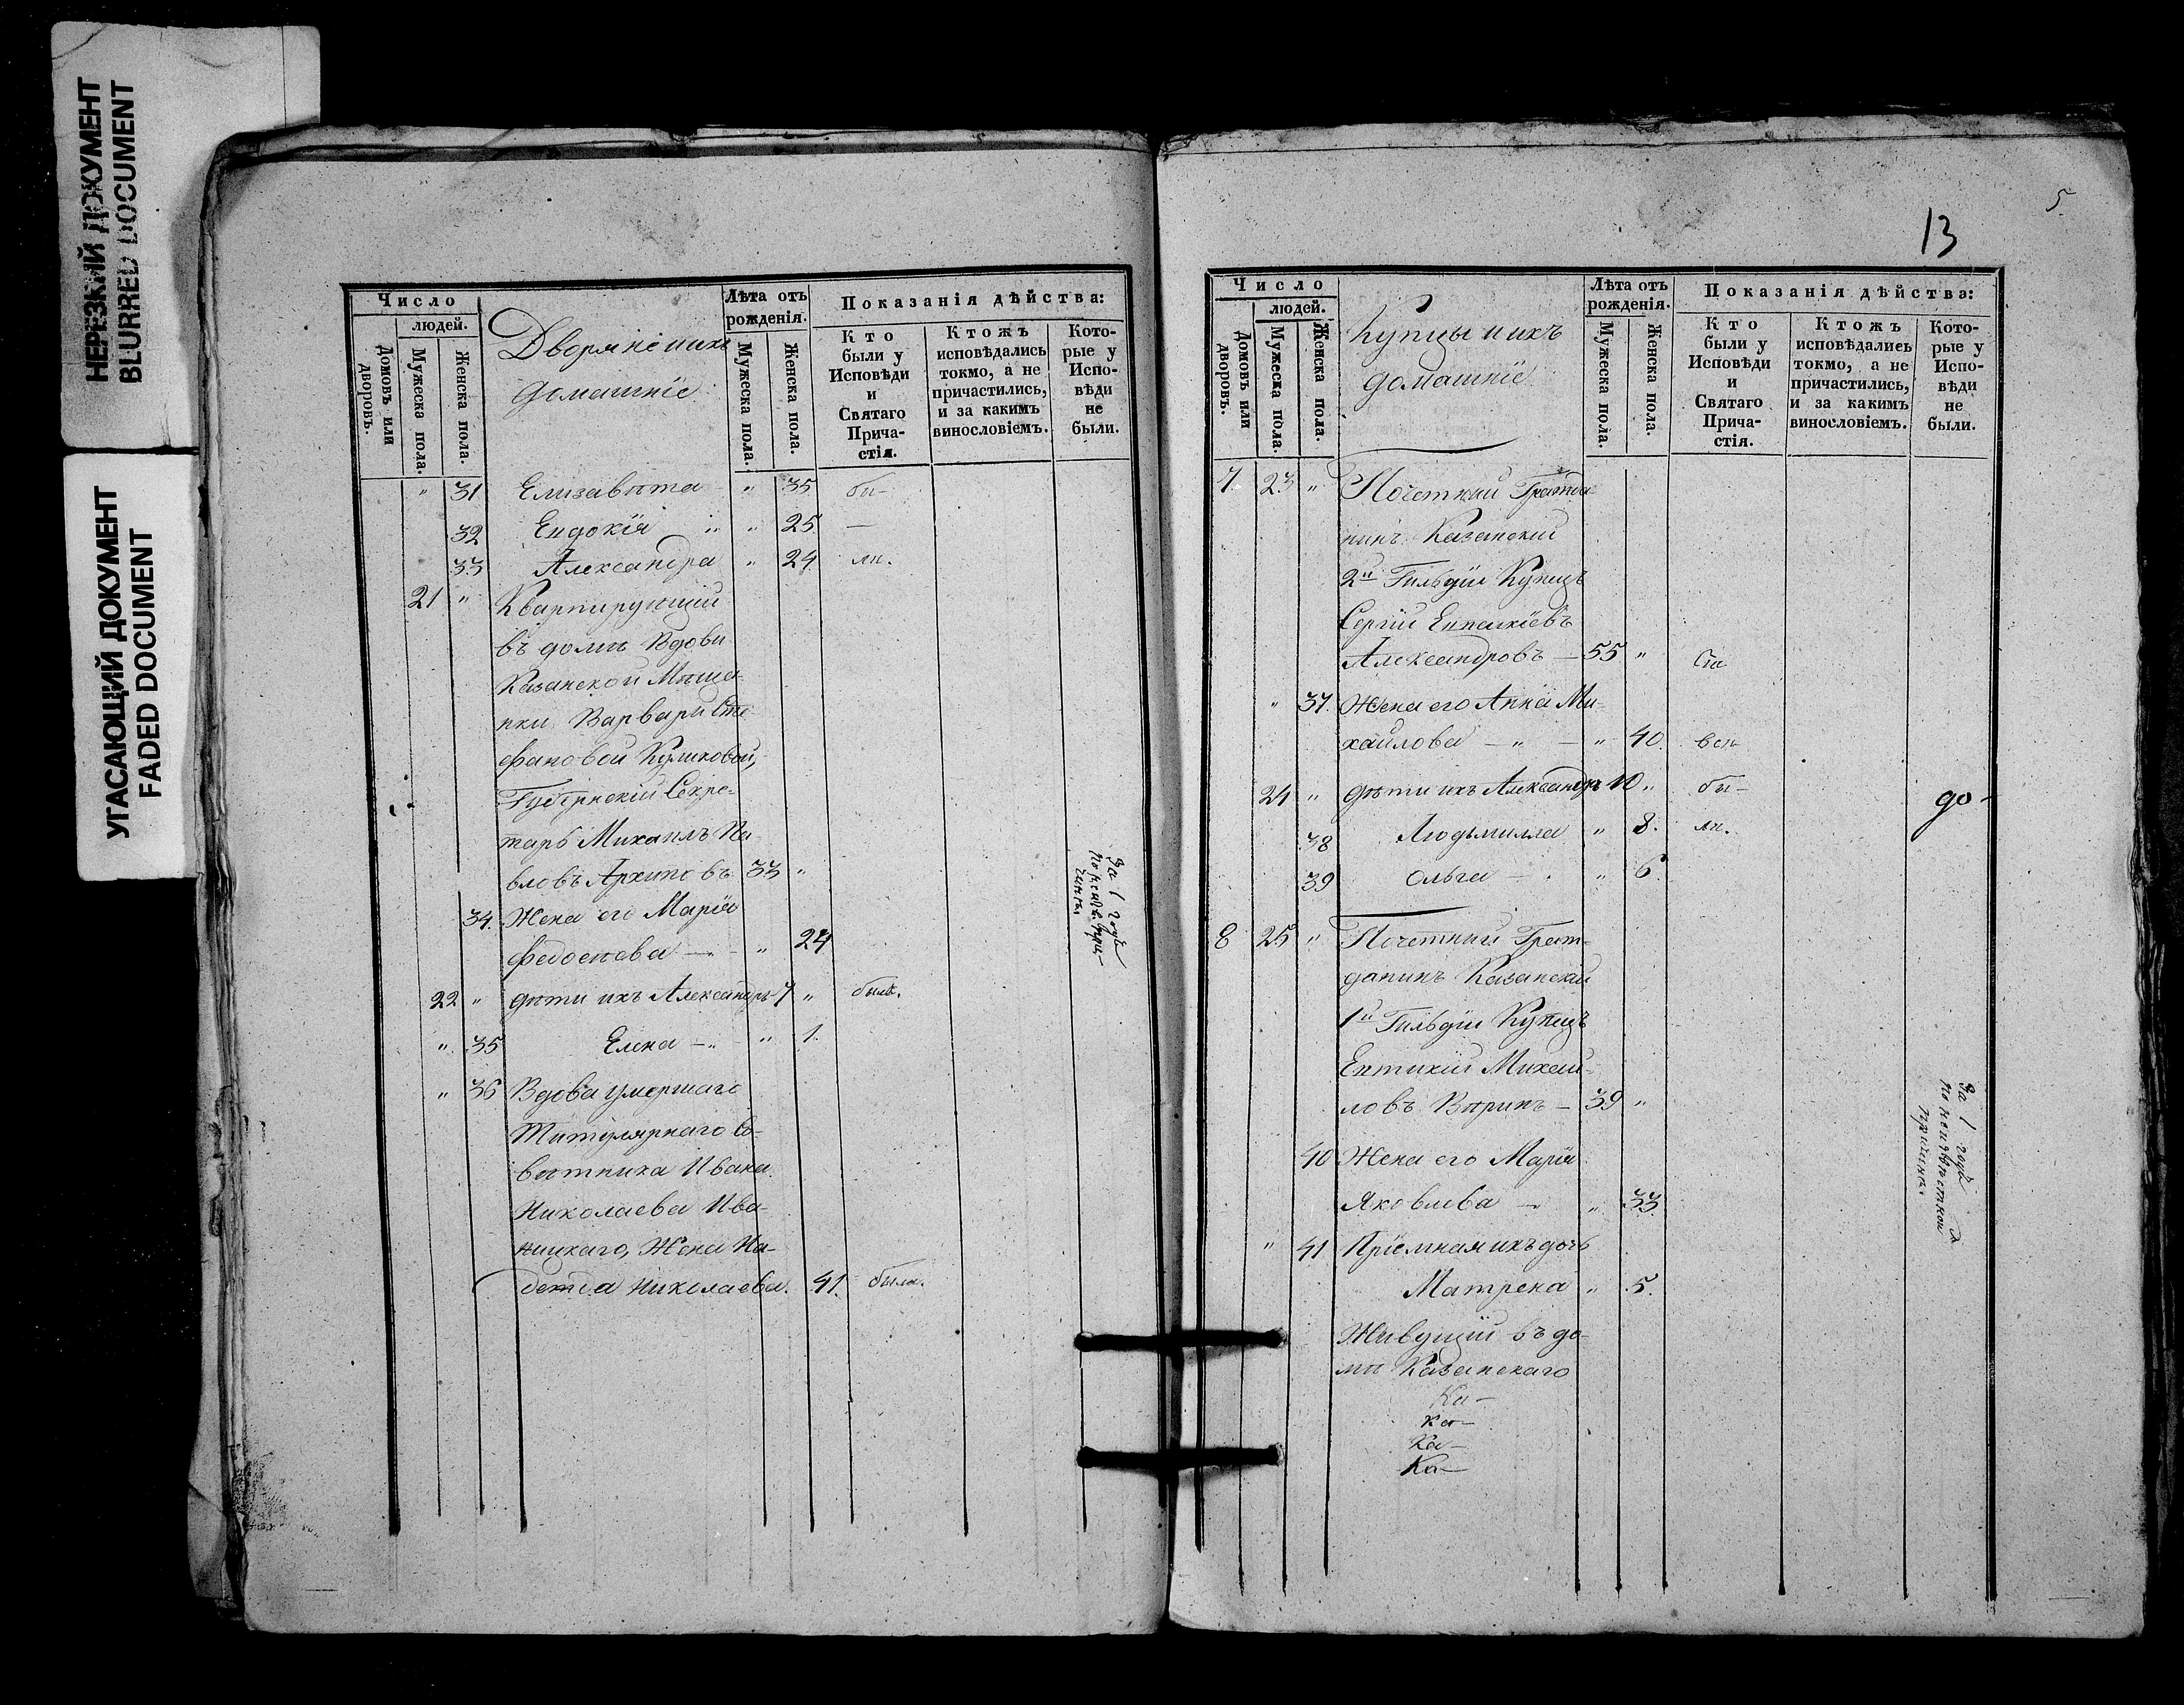 НЕРЕЗКИЙ ДОКУМЕНТ
BLURRED DOCUMENT
УГАСАЮЩИЙ ДОКУМЕНТ
FADED DOCUMENT
Число
людей.
Домовъ или дворовъ.
Мужеска пола.
Женска пола.
Дворяне и ихъ
домашніе
Лѣта отъ рожденія.
Мужеска пола.
Женска пола.
Показанія дѣйства:
Кто были у Исповѣди и Святаго Причастія.
Ктожъ исповѣдались токмо, а не причастились, и за какимъ винословіемъ.
Которые у Исповѣди не были.
" 31 Елизавета " 35 бы-
32 Евдокія " " 25 —
33 Александра " 24 ли.
21 " Квартирующій
въ домѣ Вдовы
Казанской Мѣща-
нки Варвары Сте-
фановой Куликовой,
Губернскій Секре-
тарь Михаилъ Па-
вловъ Архиповъ 33 "
34. Жена его Марія
Федосѣева — " 24
22 " дѣти ихъ Александръ 7 " былъ.
" 35 Елена — " " 1.
" 36 Вдова умершаго
Титулярнаго Со-
вѣтника Ивана
Николаева Ива-
ницкаго, Жена На-
дежда Николаева. 41. была.
За 1 годъ
13
5
Число
людей.
Домовъ или дворовъ.
Мужеска пола.
Женска пола.
Купцы и ихъ
домашніе
Лѣта отъ рожденія.
Мужеска пола.
Женска пола.
Показанія дѣйства:
Кто были у Исповѣди и Святаго Причастія.
Ктожъ исповѣдались токмо, а не причастились, и за какимъ винословіемъ.
Которые у Исповѣди не были.
7. 23 " Почетный Гражда-
нинъ Казанскій
2й Гильдіи Купецъ
Сергій
Александровъ — 55 "
" 37. Жена его Анна Ми-
хайлова — " — " 40. всѣ
24 " дѣти ихъ Александръ 10 " бы-
38 Людьмилла " 8. ли.
39 Ольга — " 6.
до-
8 25 " Почетный Граж-
данинъ Казанскій
1й Гильдіи Купецъ
Евтихій Михай-
ловъ — 39 "
40 Жена его Марія
Яковлева — " 33
" 41 Пріемная ихъ дочь
Матрена " 5.
За 1 годъ
по неизвѣстной
причинѣ.
Живущіи въ до-
мѣ Казанскаго
Ка-
Ка-
Ка-
Ка-